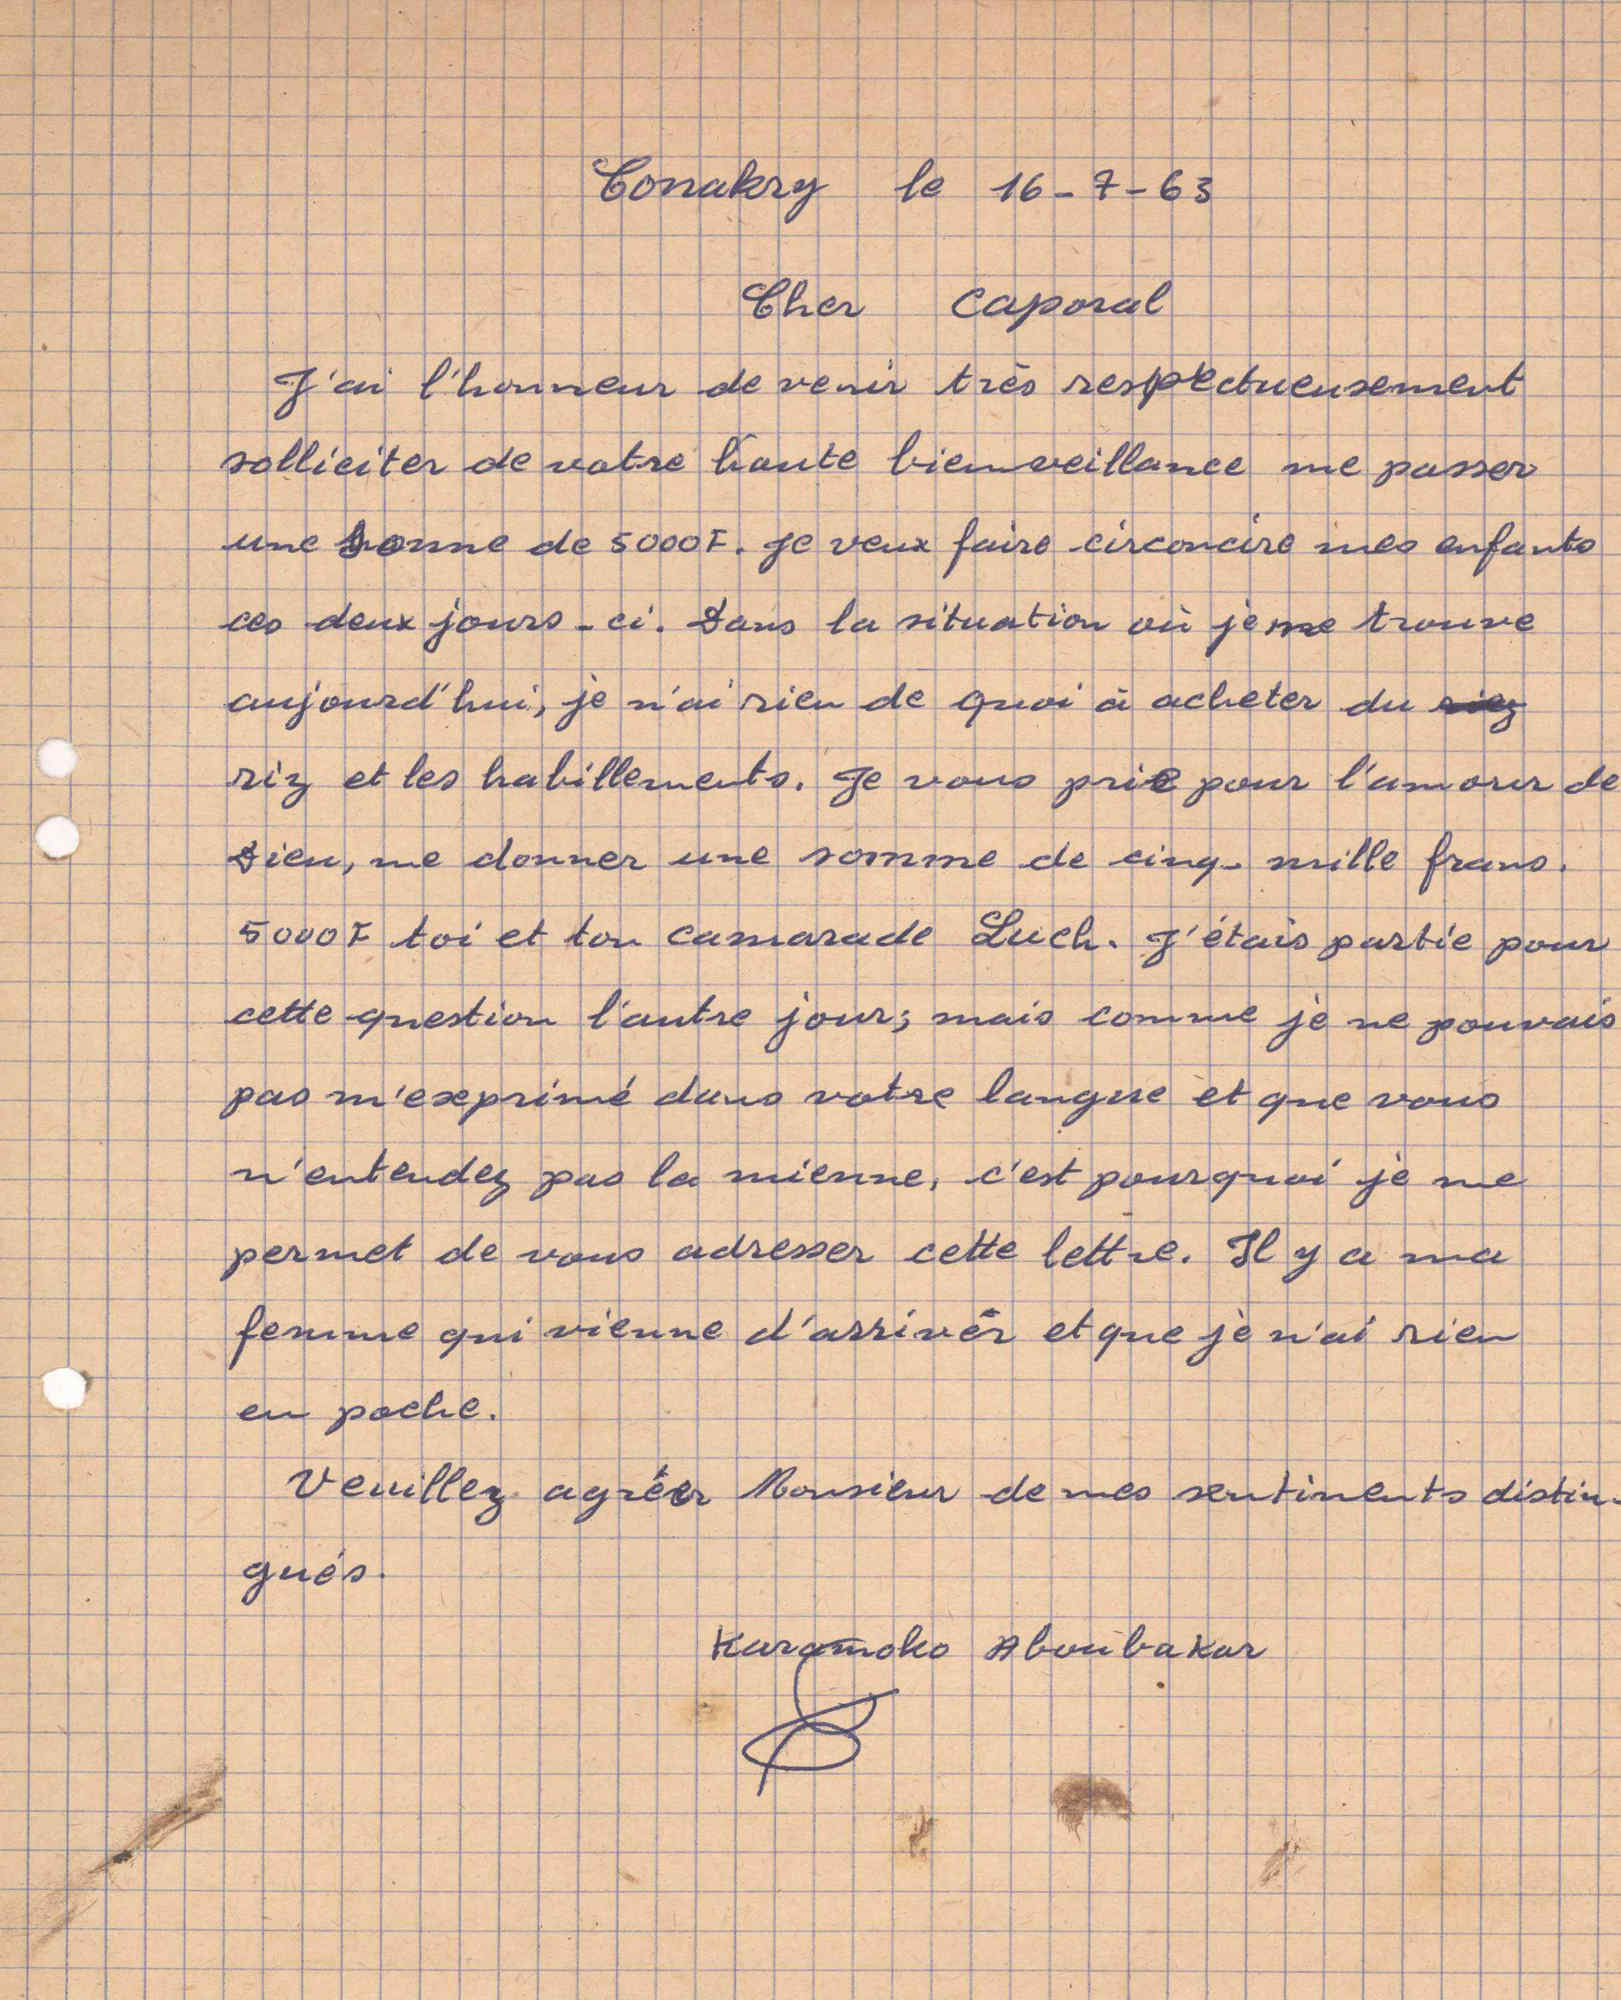 Conakry le 16-7-63
Cher Caporal
J'ai l'honneur de venir très respectueusement
solliciter de votre haute bienveillance me passer
une somme de 5000F. Je veux faire circoncire mes enfants
ces deux jours-ci. Dans la situation où je me trouve
aujourd'hui, je n'ai rien de quoi à acheter du riez
riz et les habillements. Je vous prie pour l'amour de
Dieu, me donner une somme de cinq-mille frans.
5000F toi et ton camarade Luch. J'étais partie pour
cette question l'autre jour; mais comme je ne pouvais
pas m'exprimé dans votre langue et que vous
n'entendez pas la mienne, c'est pourquoi je me
permet de vous adresser cette lettre. Il y a ma
femme qui vienne d'arriver et que je n'ai rien
en poche.
Veuillez agréer Monsieur de mes sentiments distin-
gués.
Karamoko Aboubakar